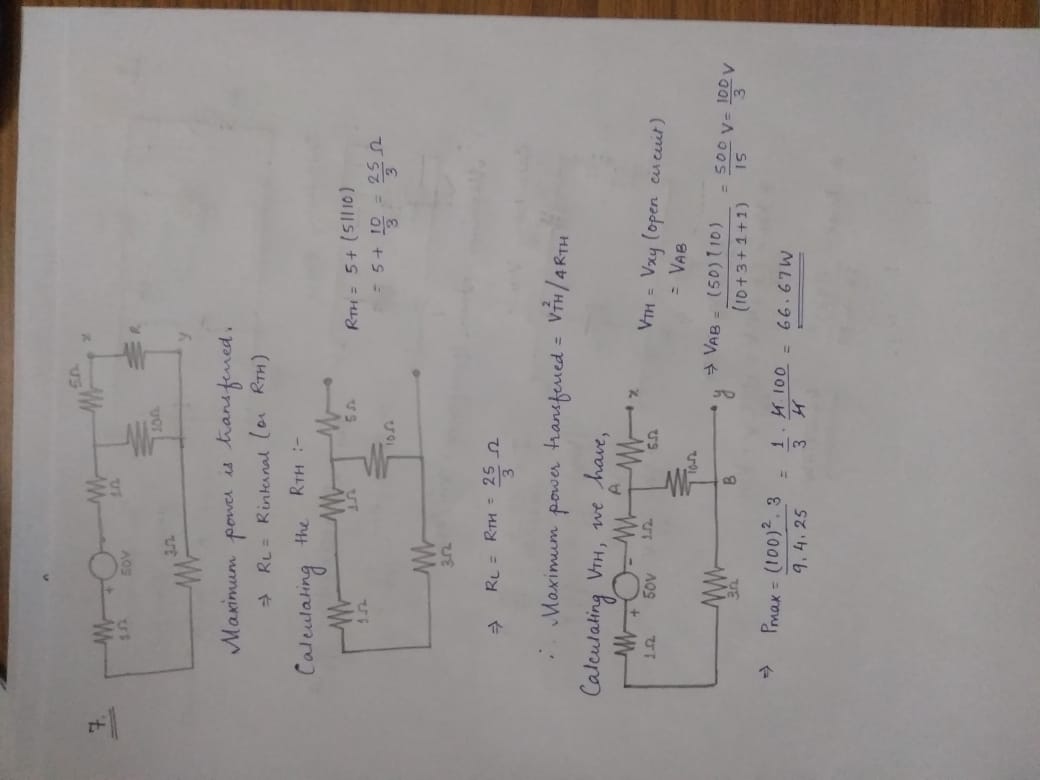 7.
1Ω + 50V - 1Ω 5Ω x
10Ω R
3Ω y
Maximum power is transferred.
⇒ RL = Rinternal (or RTH)
Calculating the RTH :-
1Ω 1Ω 5Ω
10Ω
3Ω
RTH = 5 + (5||10)
= 5 + 10/3 = 25/3 Ω
⇒ RL = RTH = 25/3 Ω
∴ Maximum power transferred = V²TH/4RTH
Calculating VTH, we have,
1Ω + 50V - 1Ω A 5Ω x
10Ω
3Ω B y
VTH = Vxy (open circuit)
= VAB
⇒ VAB = (50)(10)/(10+3+1+1) = 500/15 V = 100/3 V
⇒ Pmax = (100)² . 3/9. 4. 25 = 1/3 . 4.100/4 = 66.67W